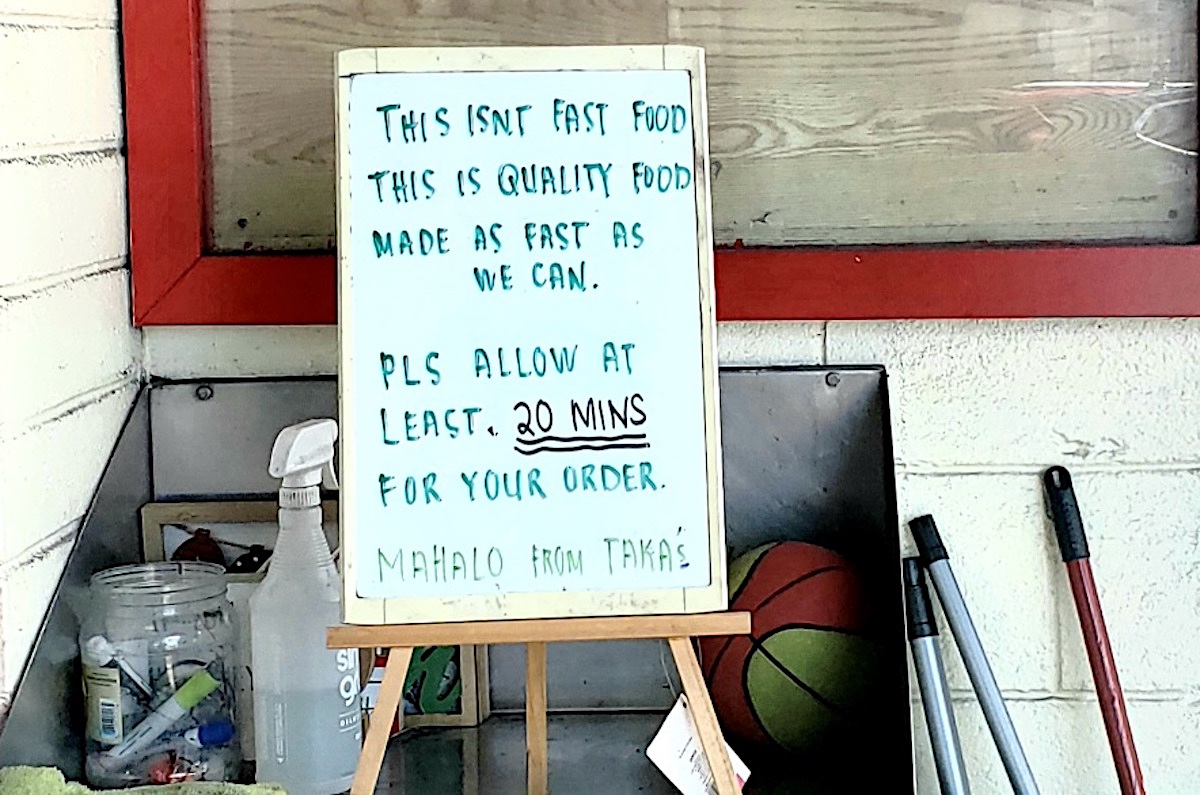 THIS ISNT FAST FOOD
THIS IS QUALITY FOOD
MADE AS FAST AS
WE CAN.
PLS ALLOW AT
LEAST. 20 MINS
FOR YOUR ORDER.
MAHALO FROM TAKA'S